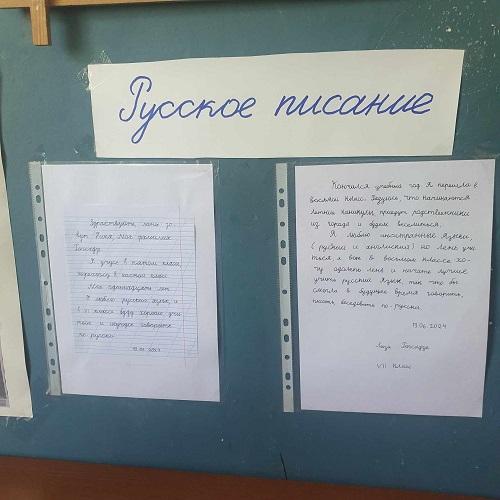 Русское писание
Здраствуйте, меня зо-
вут Лиза, Моя фамилия
Я учусь в пятом классе,
перехожу в шестой класс.
Мне одиннадцать лет
Я люблю русский язык, и
в VI классе буду хорошо учи
ться и научусь говорить
по русски.
13.06.2024
Кончился учебный год. Я перешла в
восьмой класс. Радуюсь, что начинаются
летние каникулы, приедут родственники
из города и будем веселиться.
Я люблю иностранные языки,
(русский и английский) но лень учи
ться и вот в восьмом классе хо-
чу одолеть лень и начать лучше
учить русский язык так что бы
смогла в будущее время говорить
писать, беседовать по-русски.
13.06.2024
VII класс